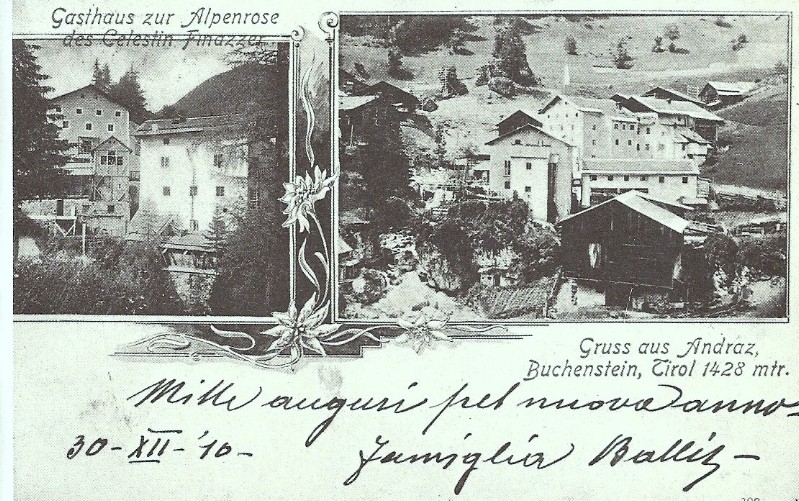 Gasthaus zur Alpenrose
des Celestin Finazzer
Gruss aus Andraz,
Buchenstein, Tirol 1428 mtr.
Mille auguri pel nuovo anno-
30-XII-'10- famiglia